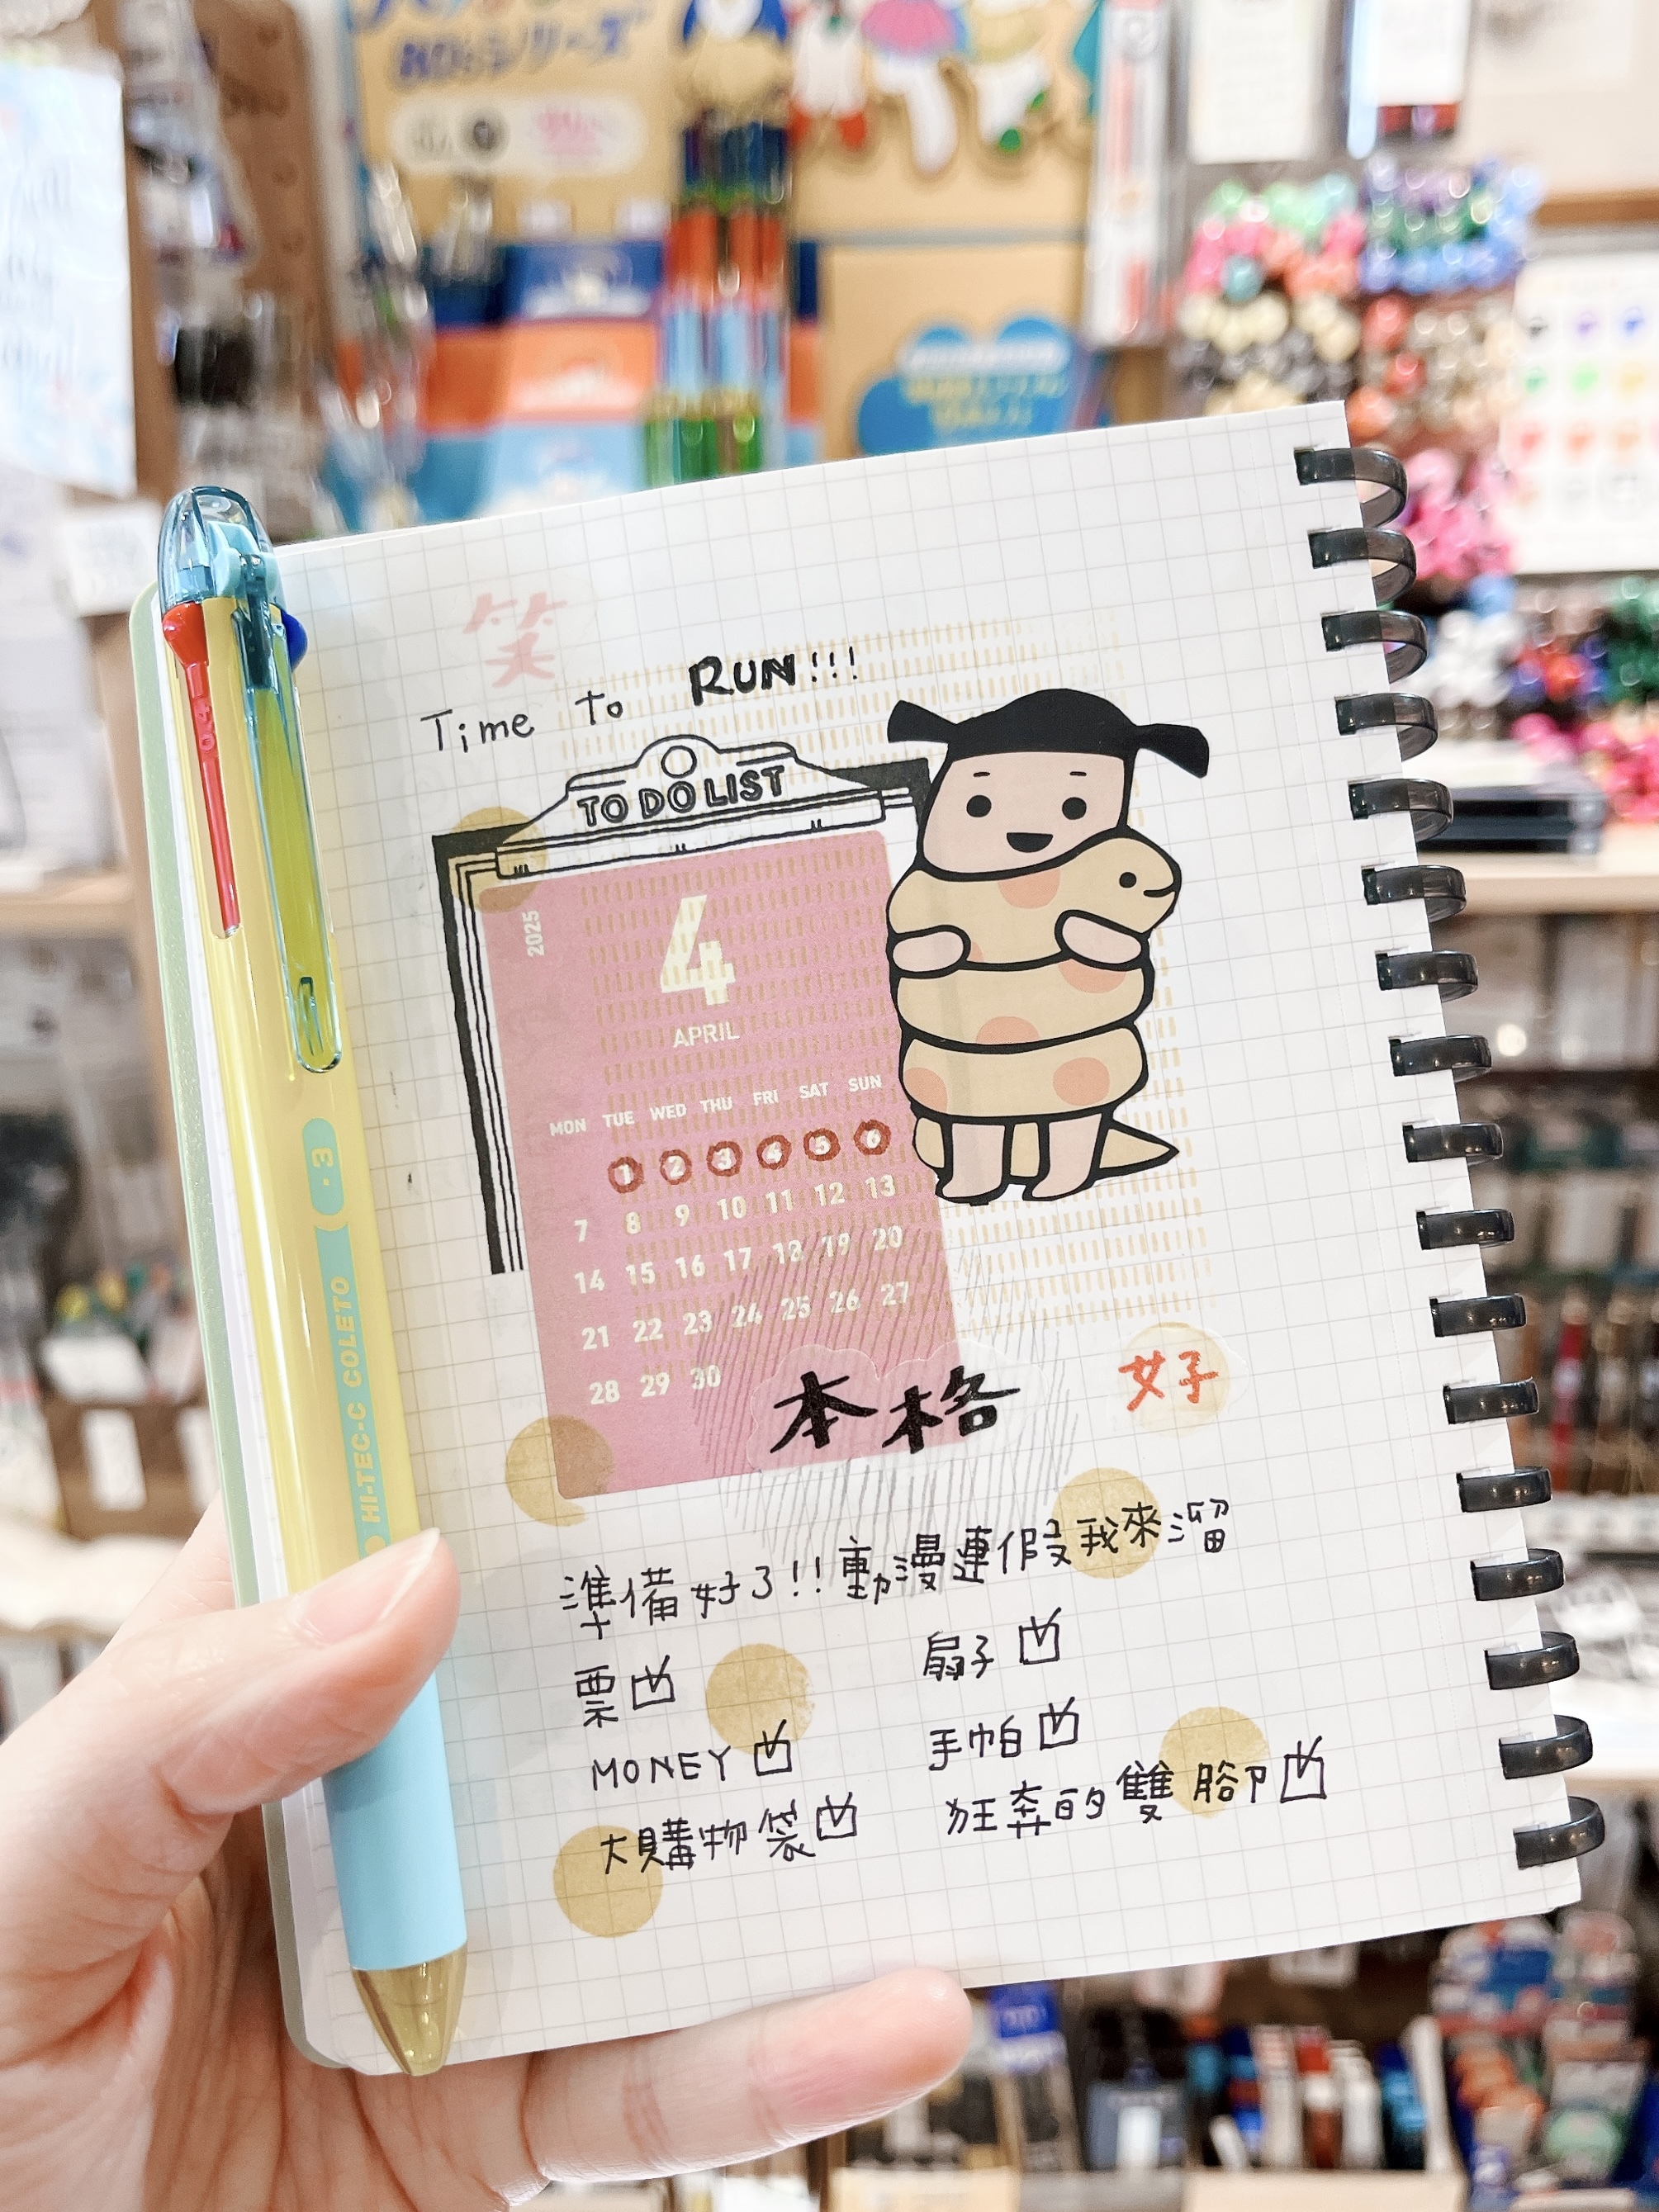 BOXシリーズ
笑
Time To RUN!!!
TO DO LIST
2025
4
APRIL
MON TUE WED THU FRI SAT SUN
1 2 3 4 5 6
7 8 9 10 11 12 13
14 15 16 17 18 19 20
21 22 23 24 25 26 27
28 29 30
本格
好
準備好了!!動漫連假我來溜
票 扇子
MONEY 手帕
大購物袋 狂奔的雙腳
HI-TEC-C COLETO
.3